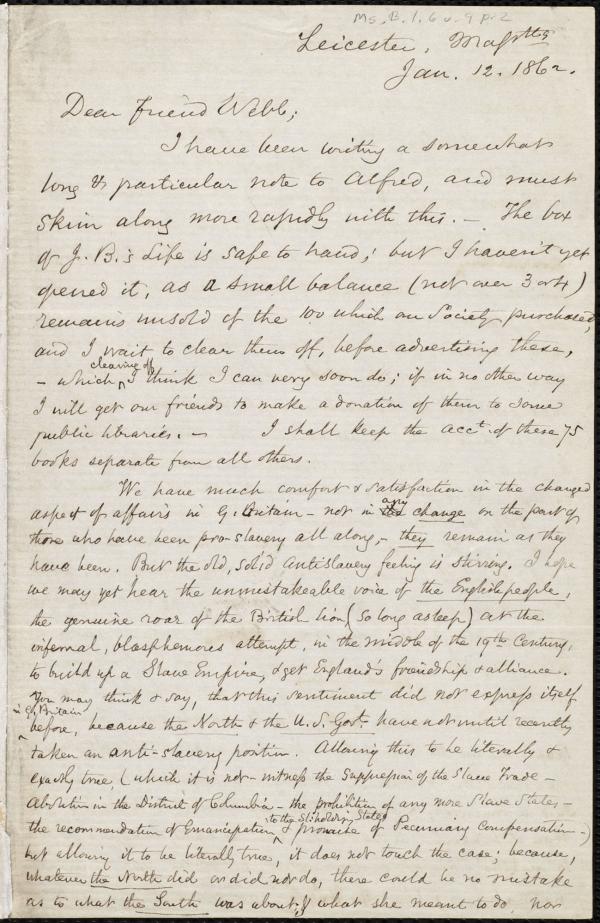 Ms. B. 1. 6 v. 9 p. 2
Leicester, Mass.tts
Jan. 12. 1862.
Dear Friend Webb;
I have been writing a somewhat
long & particular note to Alfred, and must
skim along more rapidly with this. — The box
of J. B.'s Life is safe to hand; but I haven't yet
opened it, as a small balance (not over 3 or 4)
remains unsold of the 100 which our Society purchased,
and I wait to clear them off, before advertising these,
clearing off
– which I think I can very soon do; if in no other way
I will get our friends to make a donation of them to some
public libraries. — I shall keep the acct. of these 75
books separate from all others.
We have much comfort & satisfaction in the changed
aspect of affairs in G. Britain – not in any change on the part of
those who have been pro-slavery all along, – they remain as they
have been. But the old, solid antislavery feeling is stirring. I hope
we may yet hear the unmistakeable voice of the English people,
the genuine roar of the British lion (so long asleep) at the
infernal, blasphemous attempt, in the middle of the 19th Century,
to build up a Slave Empire, & get England's friendship & alliance.
You may think & say, that this sentiment did not express itself
in Gt. Britain
before, because the North & the U.S. Govt. have not until recently
taken an anti-slavery position. Allowing this to be literally &
exactly true, (which it is not – witness the Suppression of the Slave Trade –
Abolition in the District of Columbia – the prohibition of any more Slave States –
to the Sl.holding States
the recommendation of Emancipation & promise of Pecuniary Compensation –)
but allowing it to be literally true, it does not touch the case; because,
whatever the North did or did not do, there could be no mistake
as to what the South was about, & what she meant to do nor